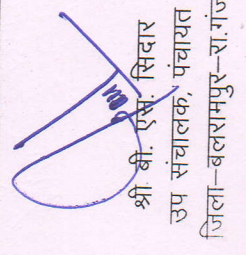 श्री बी. एस. सिदार
उप संचालक, पंचायत
जिला–बलरामपुर–रा.गंज